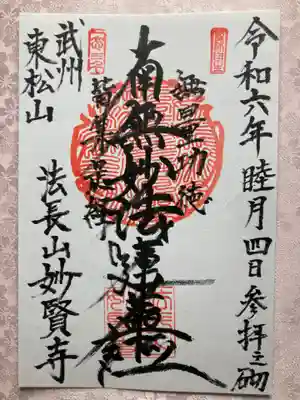 令和六年睦月四日参拝之砌
無量功徳
南無妙法蓮華経
武州
東松山
法長山妙賢寺